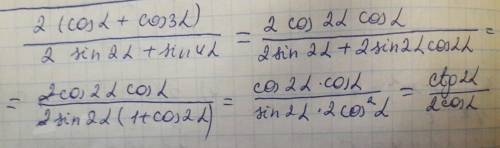 2 (cosα + cos3α) / 2 sin2α + sin4α = 2 cos 2α cosα / 2 sin 2α + 2 sin2α cos2α =
= 2 cos2α cosα / 2 sin 2α (1 + cos2α) = cos 2α · cosα / sin 2α · 2 cos²α = ctg2α / 2 cosα